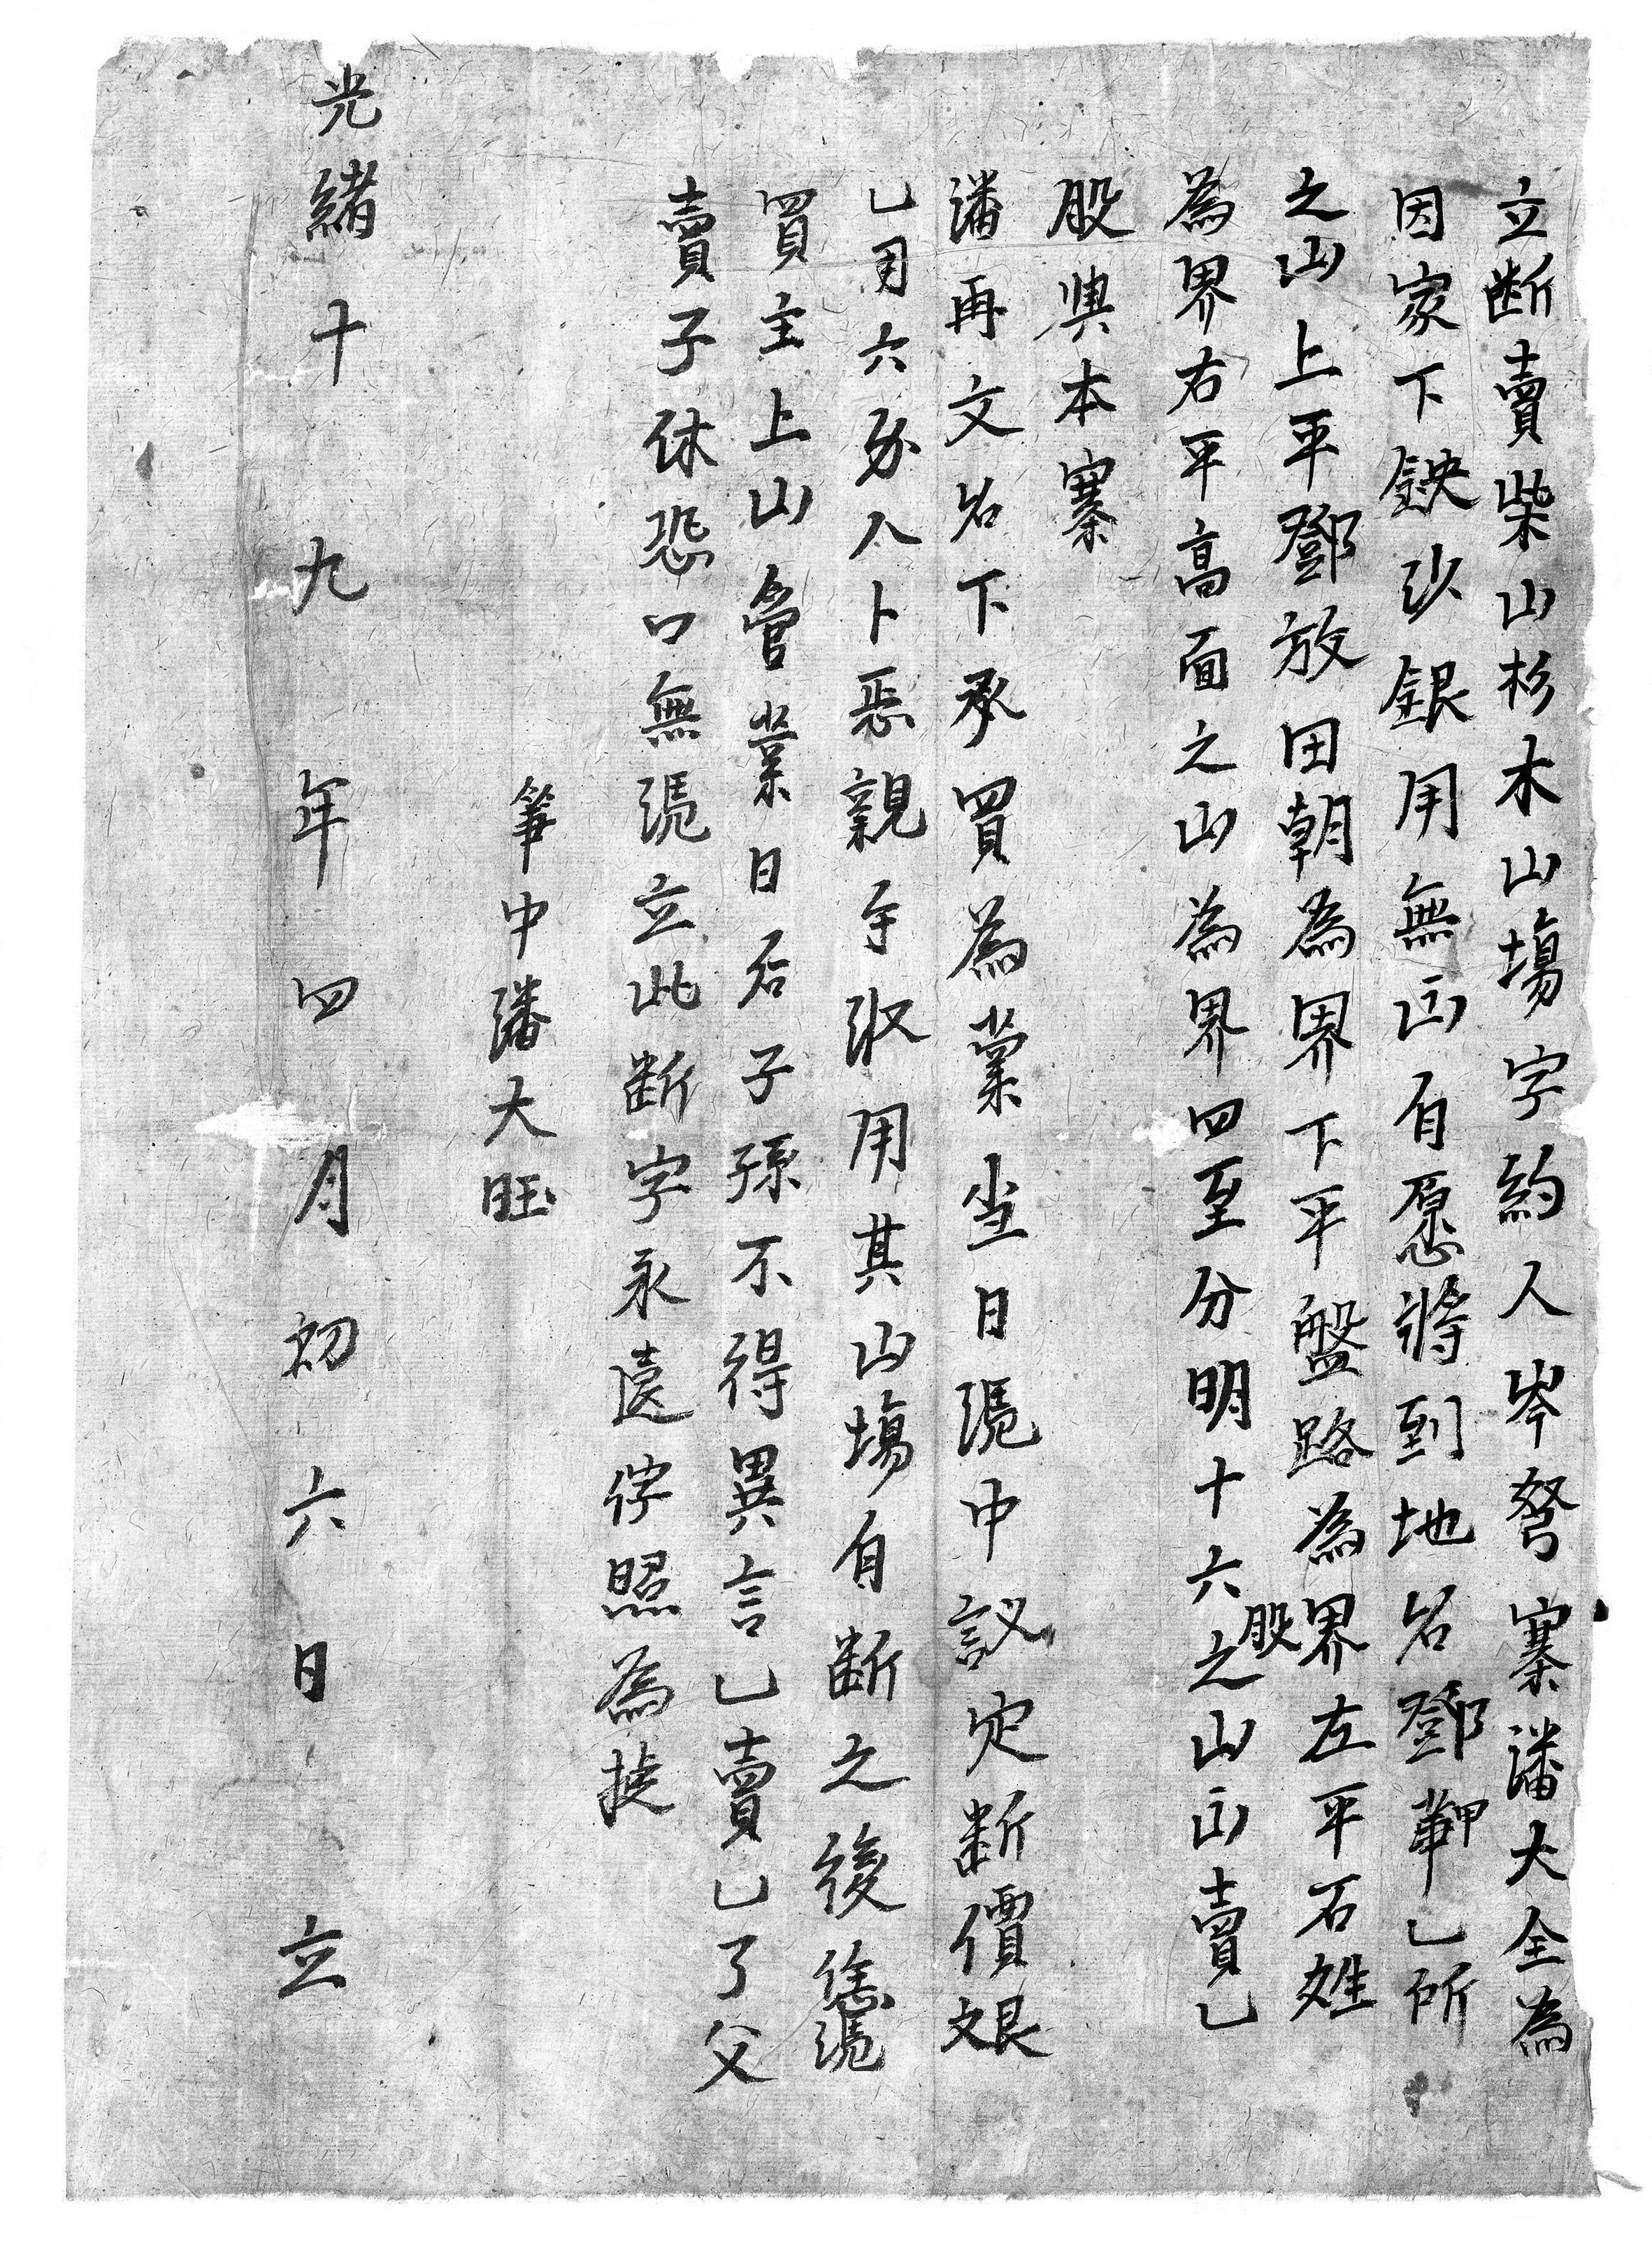 立断賣柴山杉木山塲字約人岑努寨潘大全為
因家下鈌少銀用無出自愿將到地名鄧乙所
之山上平鄧放田朝為界下平盤路為界左平石姓
為界右平高面之山為界四至分明十六股之山出賣乙
股與本寨
潘再文名下承買為業当日凴中議定断價艮
乙両六分八卜恶親手収用其山塲自断之後凴
買主上山管業日后子孫不得異言乙賣乙了父
賣子休恐口無凴立此断字永遠存照為㨿
筆中潘大旺
光緒十九年四月初六日立